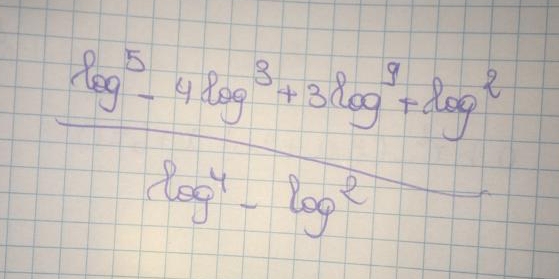 log⁵ - 4 log³ + 3 log⁹ + log²
log⁴ - log²